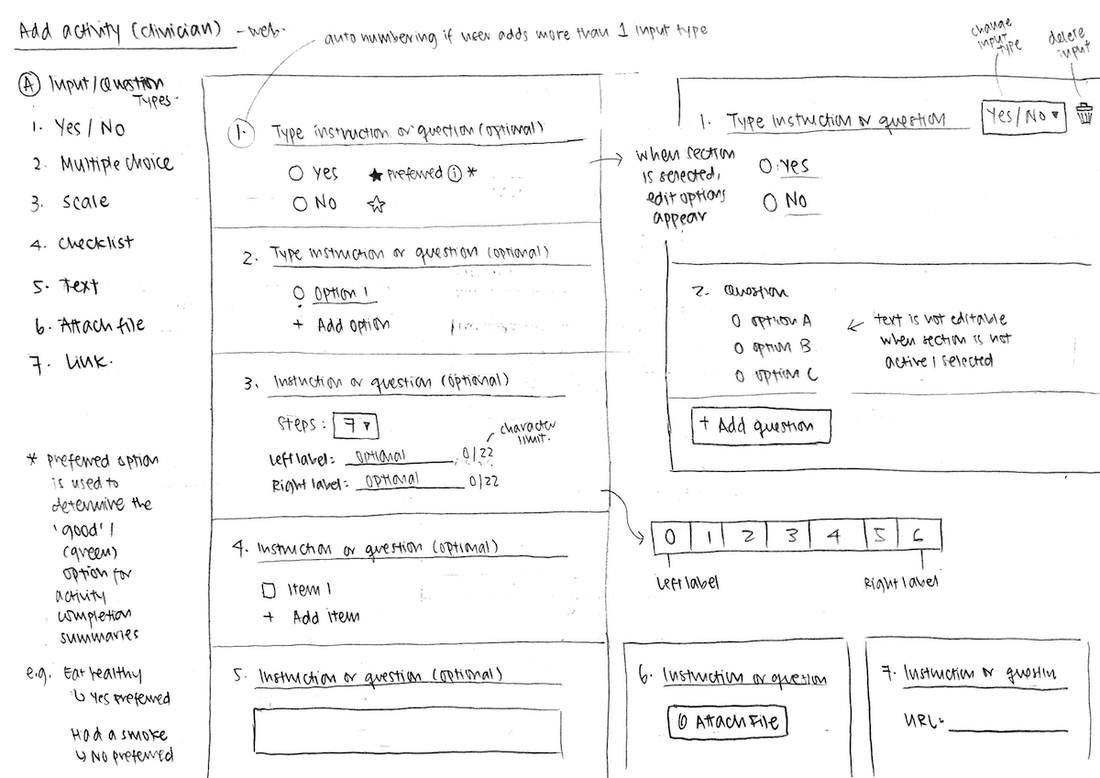 Add activity (clinician) - web -
auto numbering if user adds more than 1 input type
A Input/Question
Types -
1. Yes / No
2. Multiple choice
3. Scale
4. Checklist
5. Text
6. Attach file
7. Link.
* Preferred option
is used to
determine the
'good' /
(green)
option for
activity
completion
summaries
e.g. Eat healthy
↳ Yes preferred
Had a smoke
↳ No preferred
1. Type instruction or question (optional)
Yes ★ preferred ⓘ *
No ☆
2. Type instruction or question (optional)
Option 1
+ Add option
3. Instruction or question (optional)
Steps: 7 ▾
character
limit.
Left label: optional 0/22
Right label: optional 0/22
4. Instruction or question (optional)
Item 1
+ Add item
5. Instruction or question (optional)
change
input
type
delete
input
1. Type instruction or question Yes/No ▾
when section
is selected,
edit options
appear
Yes
No
2. Question
Option A
Option B
Option C
text is not editable
when section is not
active / selected
+ Add question
0 1 2 3 4 5 6
Left label Right label
6. Instruction or question
Attach File
7. Instruction or question
URL: